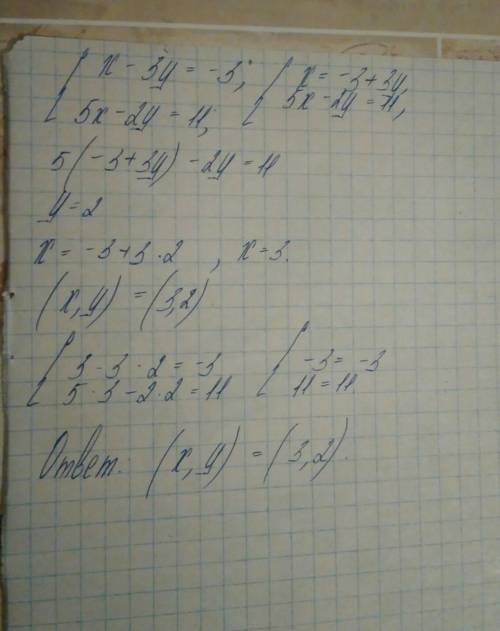 { x - 3y = -3; { x = -3 + 3y,
5x - 2y = 11; 5x - 2y = 11,
5(-3 + 3y) - 2y = 11
y = 2
x = -3 + 3 · 2 , x = 3.
(x, y) = (3, 2)
{ 3 - 3 · 2 = -3 { -3 = -3
5 · 3 - 2 · 2 = 11 11 = 11
Ответ: (x, y) = (3, 2).